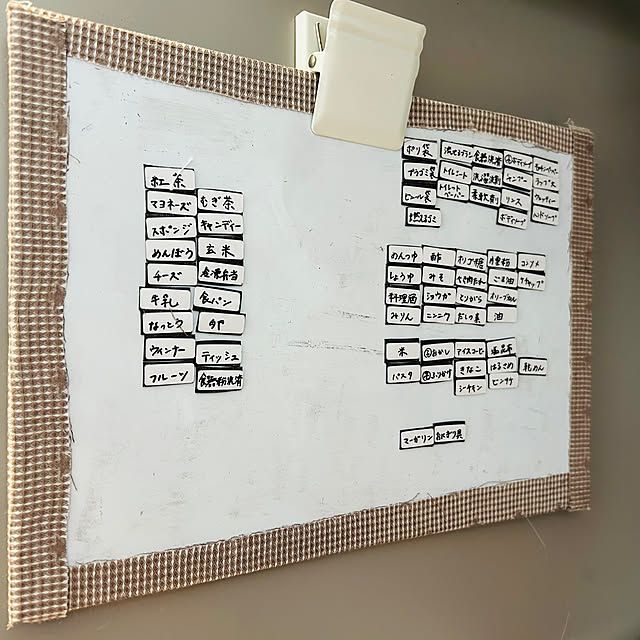 紅茶
マヨネーズ むぎ茶
スポンジ キャンディー
めんぼう 玄米
チーズ 冷凍弁当
牛乳 食パン
なっとう 卵
ウィンナー ティッシュ
フルーツ 食器粉洗剤
ポリ袋 流せるブラシ 食器洗剤 キッチンペーパー
プラゴミ袋 トイレシート 洗濯洗剤 シャンプー ラップ大
ビニール袋 トイレットペーパー 柔軟剤 リンス
燃えるゴミ ボディソープ ハンドソープ
めんつゆ 酢 オリゴ糖 片栗粉 コンソメ
しょうゆ みそ やき肉たれ ごま油 ケチャップ
料理酒 ショウガ とりがら オリーブオイル
みりん ニンニク だしの素 油
米 アイスコーヒー 塩昆布
パスタ きなこ はるさめ 乾めん
シーチキン
マーガリン お好み焼